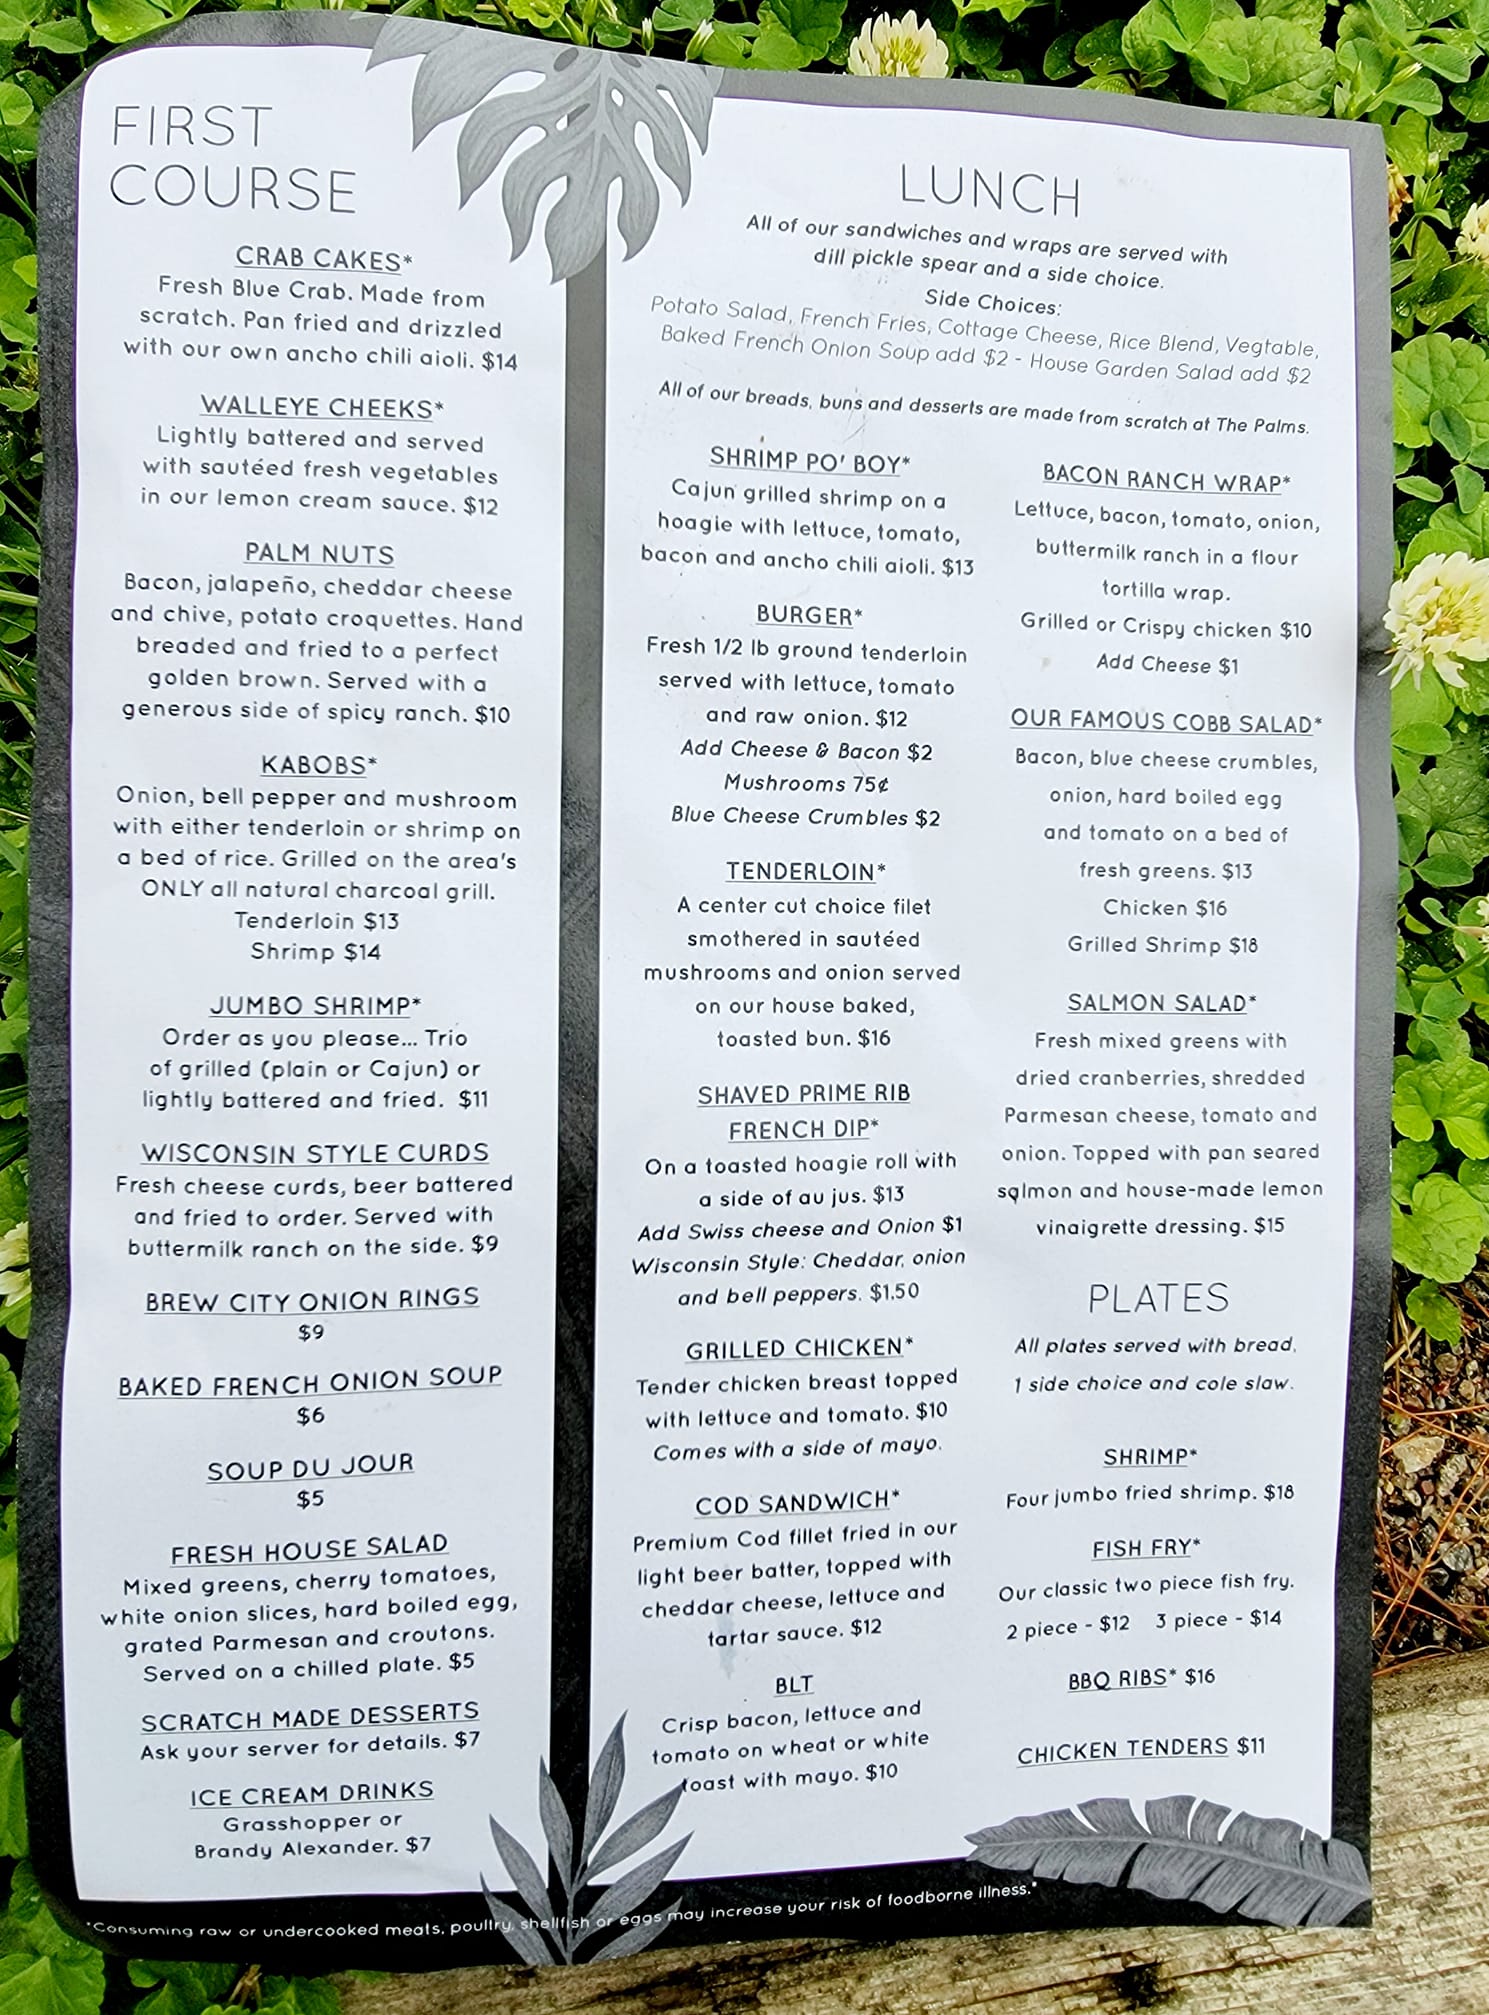 FIRST
COURSE
CRAB CAKES*
Fresh Blue Crab. Made from
scratch. Pan fried and drizzled
with our own ancho chili aioli. $14
WALLEYE CHEEKS*
Lightly battered and served
with sautéed fresh vegetables
in our lemon cream sauce. $12
PALM NUTS
Bacon, jalapeño, cheddar cheese
and chive, potato croquettes. Hand
breaded and fried to a perfect
golden brown. Served with a
generous side of spicy ranch. $10
KABOBS*
Onion, bell pepper and mushroom
with either tenderloin or shrimp on
a bed of rice. Grilled on the area's
ONLY all natural charcoal grill.
Tenderloin $13
Shrimp $14
JUMBO SHRIMP*
Order as you please... Trio
of grilled (plain or Cajun) or
lightly battered and fried. $11
WISCONSIN STYLE CURDS
Fresh cheese curds, beer battered
and fried to order. Served with
buttermilk ranch on the side. $9
BREW CITY ONION RINGS
$9
BAKED FRENCH ONION SOUP
$6
SOUP DU JOUR
$5
FRESH HOUSE SALAD
Mixed greens, cherry tomatoes,
white onion slices, hard boiled egg,
grated Parmesan and croutons.
Served on a chilled plate. $5
SCRATCH MADE DESSERTS
Ask your server for details. $7
ICE CREAM DRINKS
Grasshopper or
Brandy Alexander. $7
LUNCH
All of our sandwiches and wraps are served with
dill pickle spear and a side choice.
Side Choices:
Potato Salad, French Fries, Cottage Cheese, Rice Blend, Vegtable,
Baked French Onion Soup add $2 - House Garden Salad add $2
All of our breads, buns and desserts are made from scratch at The Palms.
SHRIMP PO' BOY*
Cajun grilled shrimp on a
hoagie with lettuce, tomato,
bacon and ancho chili aioli. $13
BURGER*
Fresh 1/2 lb ground tenderloin
served with lettuce, tomato
and raw onion. $12
Add Cheese & Bacon $2
Mushrooms 75¢
Blue Cheese Crumbles $2
TENDERLOIN*
A center cut choice filet
smothered in sautéed
mushrooms and onion served
on our house baked,
toasted bun. $16
SHAVED PRIME RIB
FRENCH DIP*
On a toasted hoagie roll with
a side of au jus. $13
Add Swiss cheese and Onion $1
Wisconsin Style: Cheddar, onion
and bell peppers. $1.50
GRILLED CHICKEN*
Tender chicken breast topped
with lettuce and tomato. $10
Comes with a side of mayo.
COD SANDWICH*
Premium Cod fillet fried in our
light beer batter, topped with
cheddar cheese, lettuce and
tartar sauce. $12
BLT
Crisp bacon, lettuce and
tomato on wheat or white
toast with mayo. $10
BACON RANCH WRAP*
Lettuce, bacon, tomato, onion,
buttermilk ranch in a flour
tortilla wrap.
Grilled or Crispy chicken $10
Add Cheese $1
OUR FAMOUS COBB SALAD*
Bacon, blue cheese crumbles,
onion, hard boiled egg
and tomato on a bed of
fresh greens. $13
Chicken $16
Grilled Shrimp $18
SALMON SALAD*
Fresh mixed greens with
dried cranberries, shredded
Parmesan cheese, tomato and
onion. Topped with pan seared
salmon and house-made lemon
vinaigrette dressing. $15
PLATES
All plates served with bread,
1 side choice and cole slaw.
SHRIMP*
Four jumbo fried shrimp. $18
FISH FRY*
Our classic two piece fish fry.
2 piece - $12 3 piece - $14
BBQ RIBS* $16
CHICKEN TENDERS $11
"Consuming raw or undercooked meats, poultry, shellfish or eggs may increase your risk of foodborne illness."